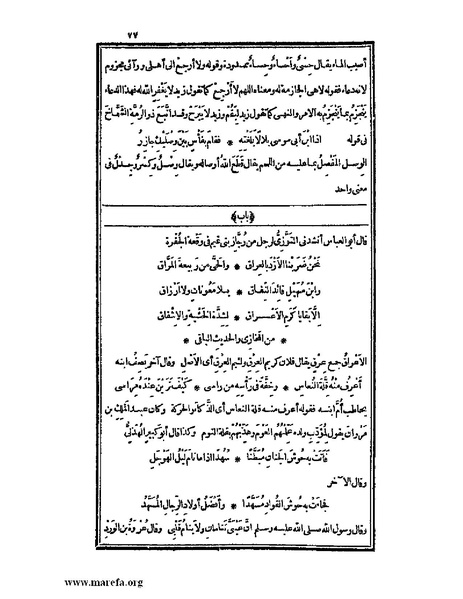 ٧٧
أصيب الماء يقال حسىٌ وأحساءٌ وحساءٌ ممدودة وقوله ولا أرجع الى أهلى ورائى مجزوم
لانه دعاء فقوله لا هى الجازمة له ومعناه اللهم لا أرجع كما تقول زيد لا يغفر الله له فهذا الدعاء
ينجزم بما ينجزم به الأمر والنهى كما تقول زيد ليقم وزيد لا يبرح وقد اتبع ذو الرمة الشماخ
فى قوله اذا ابن أبى موسى بلالا بلغته * فقام بفأس بين وصليك جازر
الوصل المفصل بما عليه من اللحم يقال قطع الله أوصاله ويقال وصل وكسر وجدل فى
معنى واحد
﴿باب﴾
قال أبو العباس أنشدنى التوزى لرجل من رجاز بنى تميم فى وقعة الجفرة
نحن ضربنا الأزد بالعراق * والحى من ربيعة المراق
وابن سهيل قائد النفاق * بلا معونات ولا أرزاق
إلا بقايا كرم الأعراق * لشدة الخشية والإشفاق
* من المخازى والحديث الباقى *
الأعراق جمع عرق يقال فلان كريم العرق ولئيم العرق أى الأصل وقال آخر يصف ابنه
أعرف منه قلة النعاس * وخفة فى رأسه من راسى * كيف ترين عنده مراسى
يخاطب أم ابنه فقوله أعرف منه قلة النعاس أى الذكاء والحركة وكان عبد الملك بن
مروان يقول لمؤدب ولده علمهم العوم وهذبهم بقلة النوم وكذا قال أبو كبير الهذلى
فأتت به حوش الجنان مبطنا * سهدا اذا ما نام ليل الهوجل
وقال الآخر
فجاءت به حوش الفؤاد مسهدا * وأفضل أولاد الرجال المسهد
وقال رسول الله صلى الله عليه وسلم ان عينى تنامان ولا ينام قلبى وقال عروة بن الورد
www.marefa.org